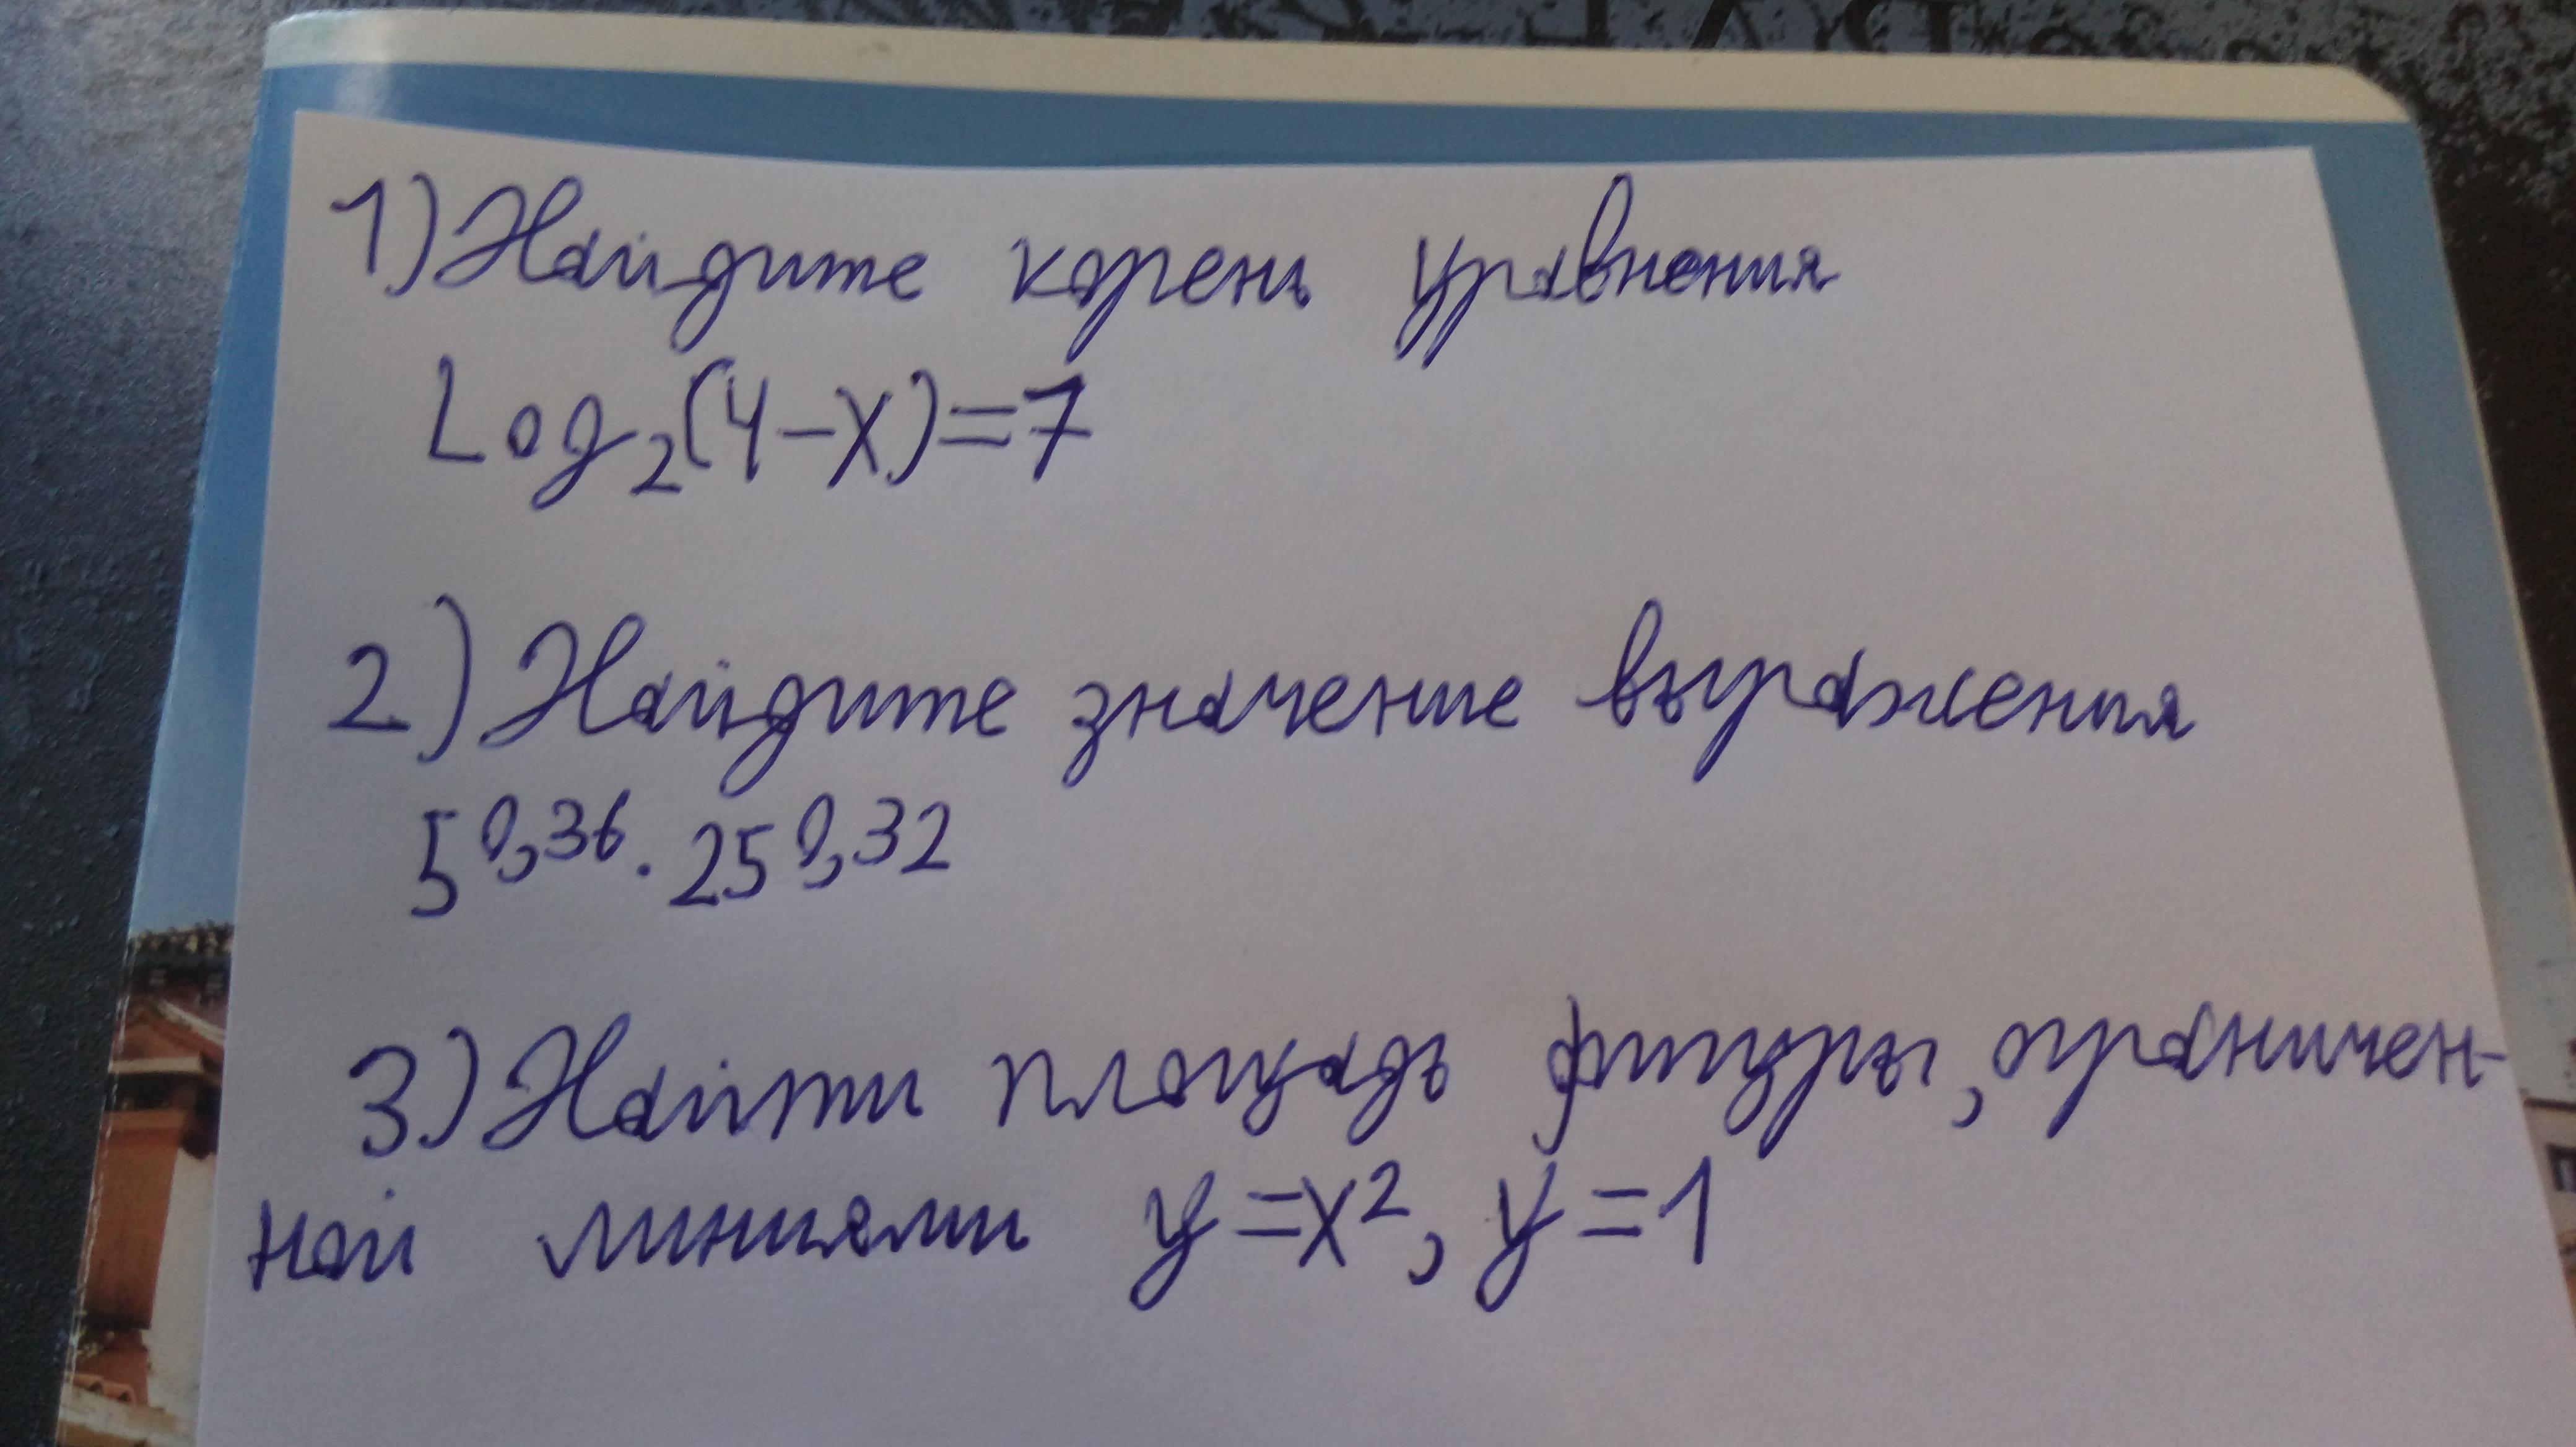 1) Найдите корень уравнения
Log₂(4-x)=7
2) Найдите значение выражения
5^0,36 · 25^0,32
3) Найти площадь фигуры, ограничен-
ной линиями y=x², y=1